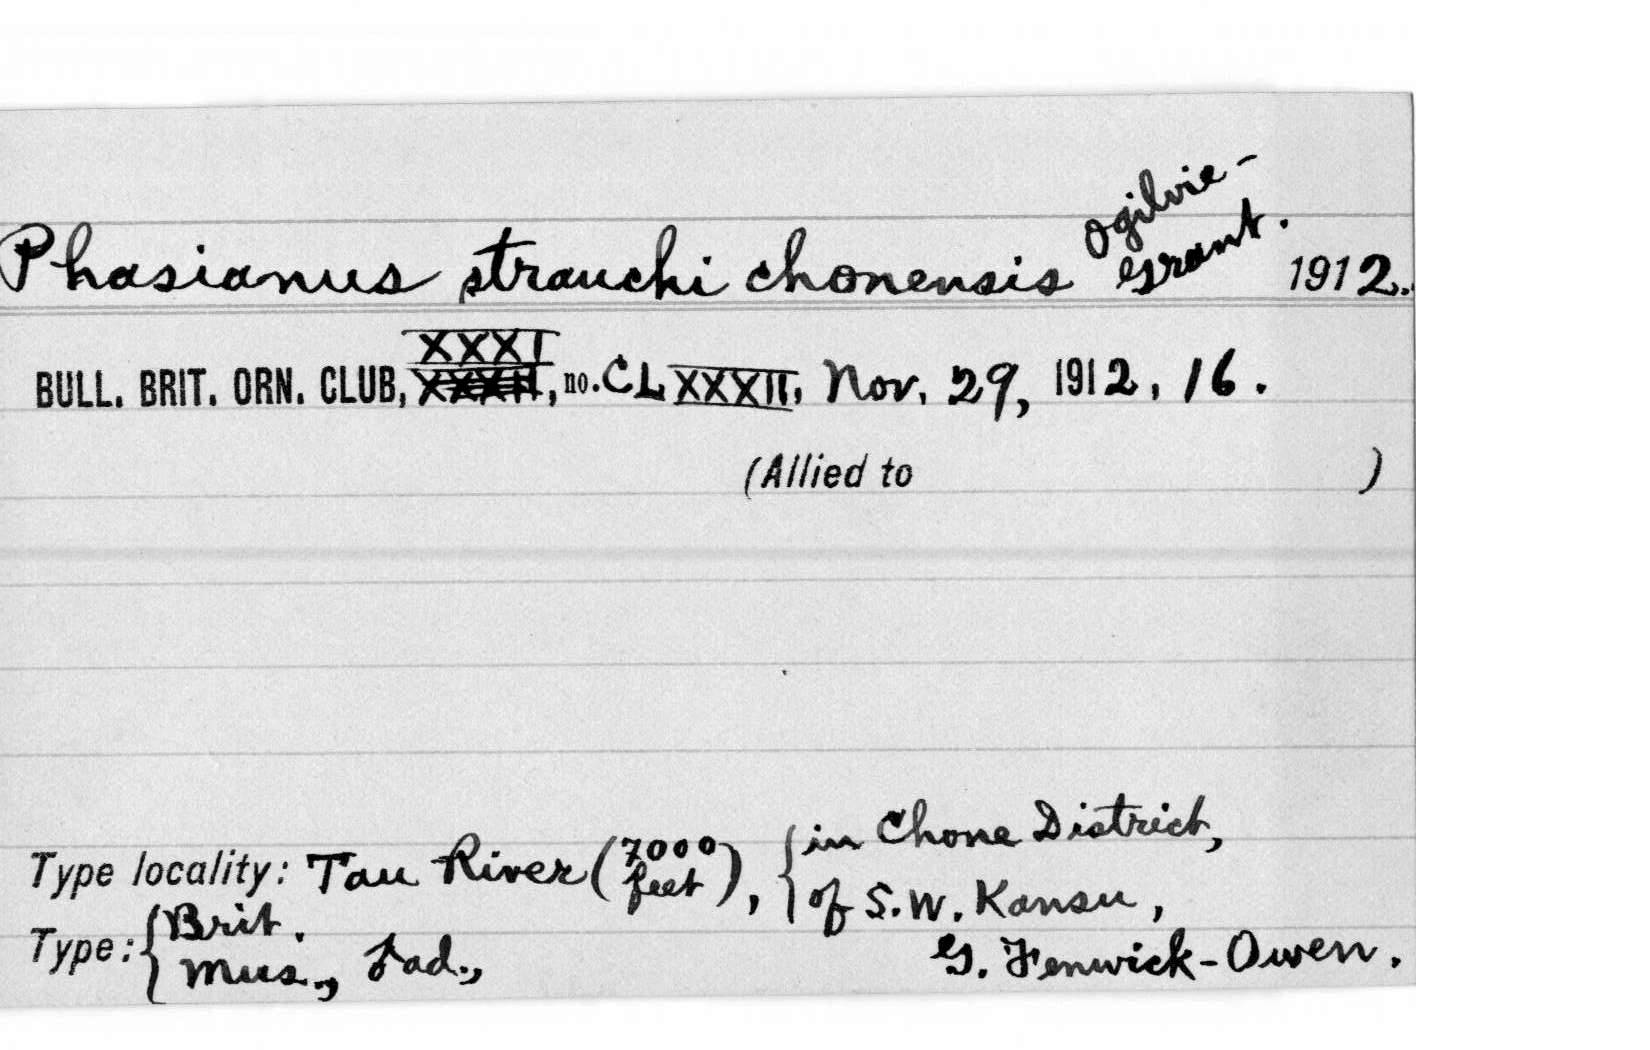 Phasianus strauchi chonensis Ogilvie-Grant. 1912.
BULL. BRIT. ORN. CLUB, XXXI, no. CLXXXII, Nov. 29, 1912, 16.
(Allied to )
Type locality: Tau River (7000 feet), {in Chone District,
of S.W. Kansu,
Type: {Brit. Mus., Jad., G. Fenwick-Owen.